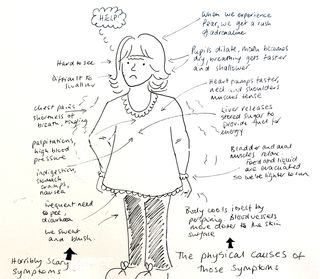 HELP!
When we experience
fear, we get a rush
of adrenaline
Pupils dilate, mouth becomes
dry, breathing gets faster
and shallower
Heart pumps faster,
neck and shoulders
muscles tense
Liver releases
stored sugar to
provide fuel for
energy
Bladder and anal
muscles relax
Food and liquid
are evacuated
so we're lighter to run
Body cools itself by
perspiring. Blood vessels
move closer to the skin
surface
The physical causes of
those symptoms
Hard to see
Difficult to
swallow
chest pains,
shortness of
breath, tingling
palpitations,
high blood
pressure
indigestion,
stomach
cramps,
nausea
frequent need to
pee, diarrhoea
We sweat
and blush.
Horribly Scary
Symptoms